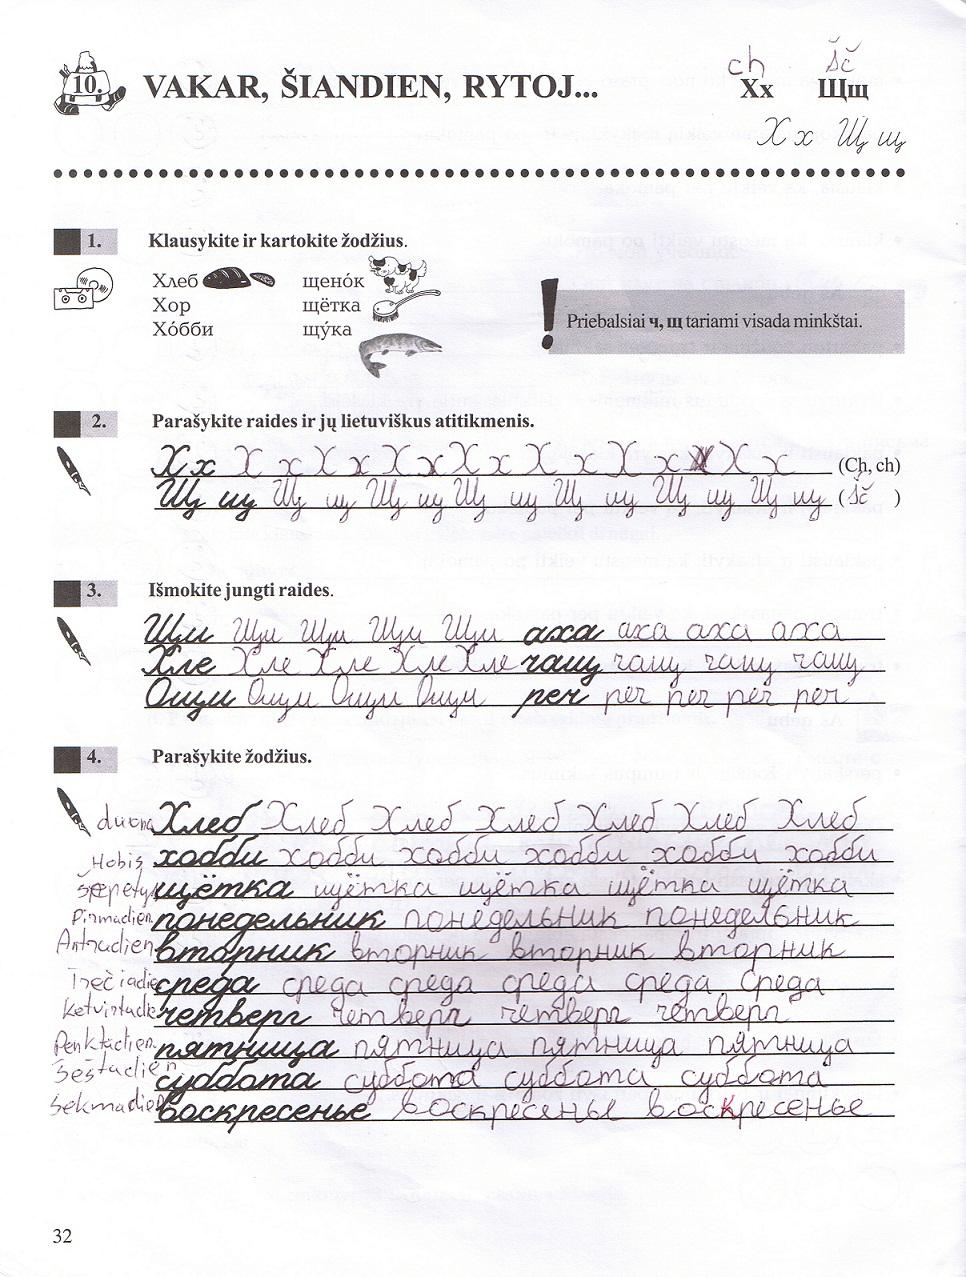 10. VAKAR, ŠIANDIEN, RYTOJ...
ch Šč
Хх Щщ
Х х Щ щ
1. Klausykite ir kartokite žodžius.
Хлеб щено́к
Хор щётка
Хо́бби щу́ка
! Priebalsiai ч, щ tariami visada minkštai.
2. Parašykite raides ir jų lietuviškus atitikmenis.
Х х Х х Х х Х х Х х Х х Х х Х х (Ch, ch)
Щ щ Щ щ Щ щ Щ щ Щ щ Щ щ Щ щ (Šč )
3. Išmokite jungti raides.
Щи Щи Щи Щи Щи аха аха аха аха
Хле Хле Хле Хле Хле чащ чащ чащ чащ
Ощи Ощи Ощи Ощи реч реч реч реч реч
4. Parašykite žodžius.
duona Хлеб Хлеб Хлеб Хлеб Хлеб Хлеб Хлеб
Hobis хобби хобби хобби хобби хобби хобби
щётка щётка щётка щётка щётка
Pirmadien понедельник понедельник понедельник
Antradien вторник вторник вторник вторник
Trečiadie среда среда среда среда среда среда
Ketvirtadie четверг четверг четверг четверг
Penktadien пятница пятница пятница пятница
Šeštadien суббота суббота суббота суббота
Sekmadien воскресенье воскресенье воскресенье
32